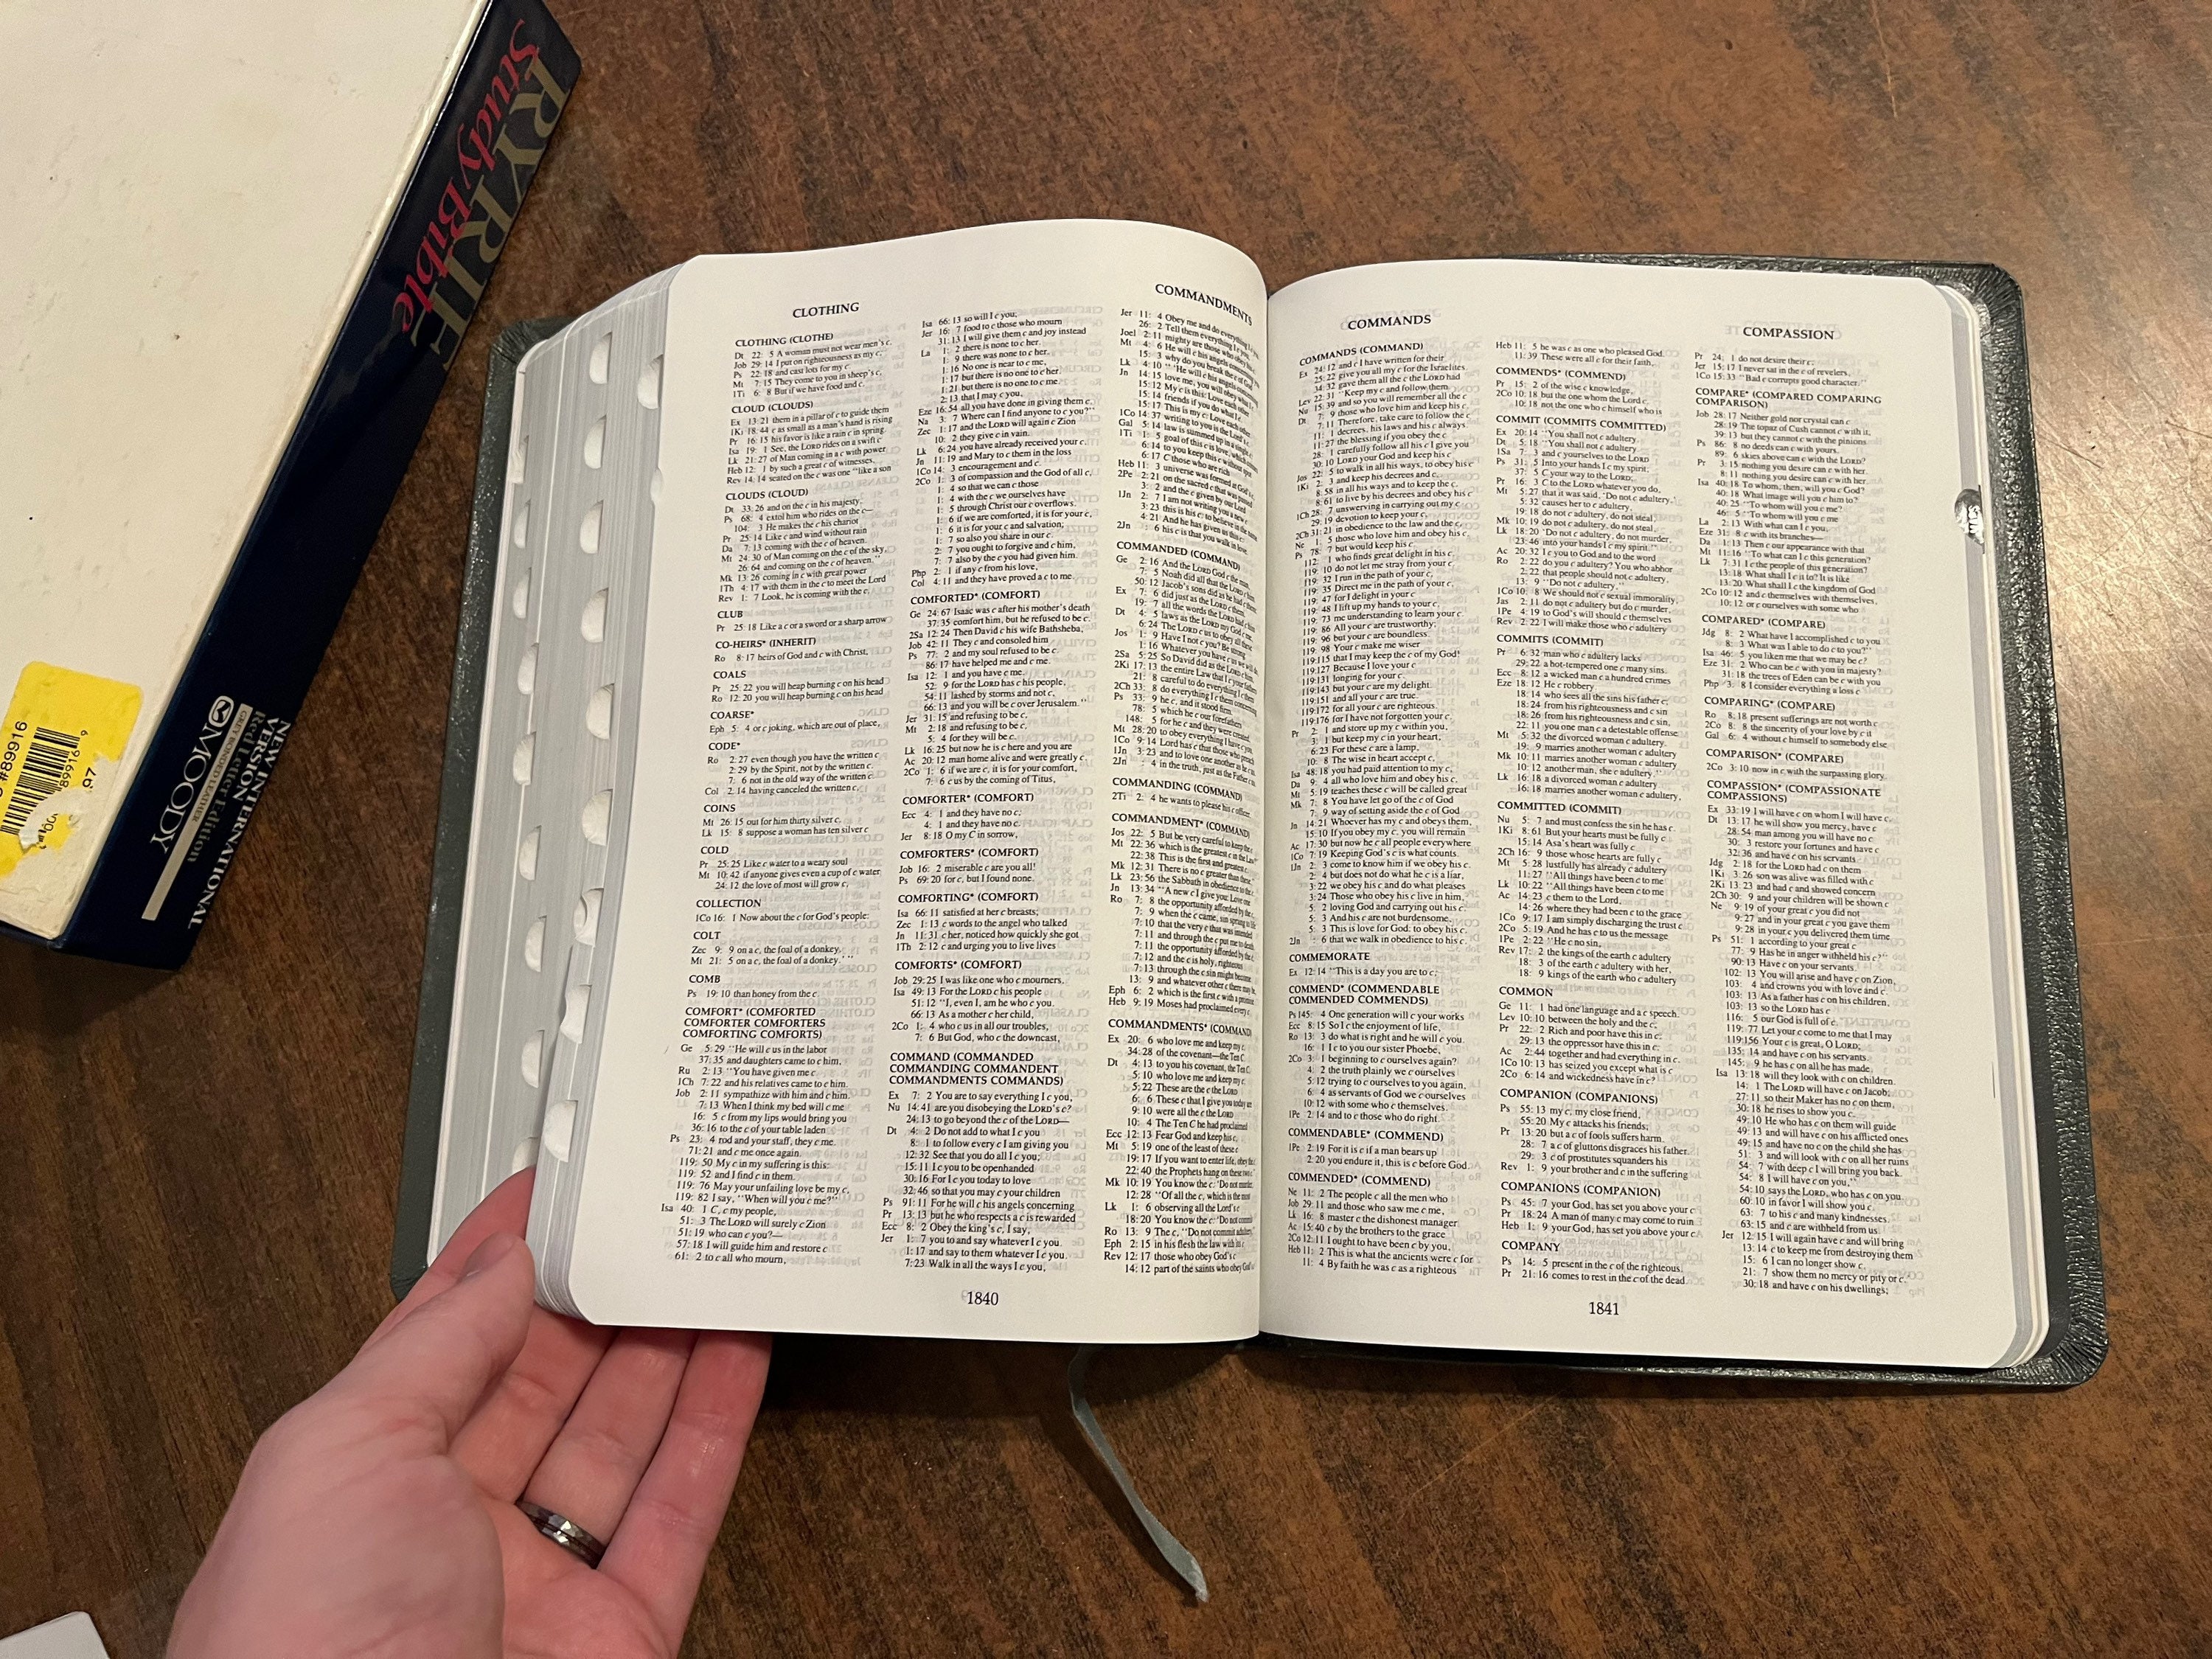 RYRIE
Study Bible
NEW INTERNATIONAL
VERSION
Red Letter Edition
MOODY
#89916
CLOTHING
CLOTHING (CLOTHE)
Dt 22: 5 A woman must not wear men's c.
Job 29:14 I put on righteousness as my c;
Ps 22:18 and cast lots for my c
Mt 7:15 They come to you in sheep's c,
1Ti 6: 8 But if we have food and c.
CLOUD (CLOUDS)
Ex 13:21 them in a pillar of c to guide them
1Ki 18:44 c as small as a man's hand is rising
Pr 16:15 his favor is like a rain c in spring.
Isa 19: 1 See, the LORD rides on a swift c
Lk 21:27 of Man coming in a c with power
Heb 12: 1 by such a great c of witnesses,
Rev 14:14 seated on the c was one "like a son
CLOUDS (CLOUD)
Dt 33:26 and on the c in his majesty.
Ps 68: 4 extol him who rides on the c—
104: 3 He makes the c his chariot
Pr 25:14 Like c and wind without rain
Da 7:13 coming with the c of heaven.
Mt 24:30 of Man coming on the c of the sky,
26:64 and coming on the c of heaven."
Mk 13:26 coming in c with great power
1Th 4:17 with them in the c to meet the Lord
Rev 1: 7 Look, he is coming with the c,
CLUB
Pr 25:18 Like a c or a sword or a sharp arrow
CO-HEIRS* (INHERIT)
Ro 8:17 heirs of God and c with Christ,
COALS
Pr 25:22 you will heap burning c on his head
Ro 12:20 you will heap burning c on his head
COARSE*
Eph 5: 4 or c joking, which are out of place,
CODE*
Ro 2:27 even though you have the written c
2:29 by the Spirit, not by the written c.
7: 6 not in the old way of the written c.
Col 2:14 having canceled the written c,
COINS
Mt 26:15 out for him thirty silver c.
Lk 15: 8 suppose a woman has ten silver c
COLD
Pr 25:25 Like c water to a weary soul
Mt 10:42 if anyone gives even a cup of c water
24:12 the love of most will grow c,
COLLECTION
1Co 16: 1 Now about the c for God's people:
COLT
Zec 9: 9 on a c, the foal of a donkey.
Mt 21: 5 on a c, the foal of a donkey.' "
COMB
Ps 19:10 than honey from the c.
COMFORT* (COMFORTED
COMFORTER COMFORTERS
COMFORTING COMFORTS)
Ge 5:29 "He will c us in the labor
37:35 and daughters came to c him,
Ru 2:13 "You have given me c
1Ch 7:22 and his relatives came to c him.
Job 2:11 sympathize with him and c him.
7:13 When I think my bed will c me
16: 5 c from my lips would bring you
36:16 to the c of your table laden
Ps 23: 4 rod and your staff, they c me.
71:21 and c me once again.
119: 50 My c in my suffering is this:
119: 52 and I find c in them.
119: 76 May your unfailing love be my c,
119: 82 I say, "When will you c me?"
Isa 40: 1 C, c my people,
51: 3 The LORD will surely c Zion
51:19 who can c you?—
57:18 I will guide him and restore c
61: 2 to c all who mourn,
Isa 66:13 so will I c you;
Jer 16: 7 food to c those who mourn
31:13 I will give them c and joy instead
La 1: 2 there is none to c her.
1: 9 there was none to c her.
1:16 No one is near to c me,
1:17 but there is no one to c her.
1:21 but there is no one to c me.
2:13 that I may c you,
Eze 16:54 all you have done in giving them c.
Na 3: 7 Where can I find anyone to c you?"
Zec 1:17 and the LORD will again c Zion
10: 2 they give c in vain.
Lk 6:24 you have already received your c.
Jn 11:19 and Mary to c them in the loss
1Co 14: 3 encouragement and c.
2Co 1: 3 of compassion and the God of all c,
1: 4 so that we can c those
1: 4 with the c we ourselves have
1: 5 through Christ our c overflows.
1: 6 if we are comforted, it is for your c,
1: 6 it is for your c and salvation;
1: 7 so also you share in our c.
2: 7 you ought to forgive and c him,
7: 7 also by the c you had given him.
Php 2: 1 if any c from his love,
Col 4:11 and they have proved a c to me.
COMFORTED* (COMFORT)
Ge 24:67 Isaac was c after his mother's death
37:35 comfort him, but he refused to be c.
2Sa 12:24 Then David c his wife Bathsheba,
Job 42:11 They c and consoled him
Ps 77: 2 and my soul refused to be c.
86:17 have helped me and c me.
Isa 12: 1 and you have c me.
52: 9 for the LORD has c his people,
54:11 lashed by storms and not c,
66:13 and you will be c over Jerusalem."
Jer 31:15 and refusing to be c,
Mt 2:18 and refusing to be c,
5: 4 for they will be c.
Lk 16:25 but now he is c here and you are
Ac 20:12 man home alive and were greatly c.
2Co 1: 6 if we are c, it is for your comfort,
7: 6 c us by the coming of Titus,
COMFORTER* (COMFORT)
Ecc 4: 1 and they have no c;
4: 1 and they have no c.
Jer 8:18 O my C in sorrow,
COMFORTERS* (COMFORT)
Job 16: 2 miserable c are you all!
Ps 69:20 for c, but I found none.
COMFORTING* (COMFORT)
Isa 66:11 satisfied at her c breasts;
Zec 1:13 c words to the angel who talked
Jn 11:31 c her, noticed how quickly she got
1Th 2:12 c and urging you to live lives
COMFORTS* (COMFORT)
Job 29:25 I was like one who c mourners.
Isa 49:13 For the LORD c his people
51:12 "I, even I, am he who c you.
66:13 As a mother c her child,
2Co 1: 4 who c us in all our troubles,
7: 6 But God, who c the downcast,
COMMAND (COMMANDED
COMMANDING COMMANDENT
COMMANDMENTS COMMANDS)
Ex 7: 2 You are to say everything I c you,
Nu 14:41 are you disobeying the LORD's c?
24:13 to go beyond the c of the LORD—
Dt 4: 2 Do not add to what I c you
8: 1 to follow every c I am giving you
12:32 See that you do all I c you;
15:11 I c you to be openhanded
30:16 For I c you today to love
32:46 so that you may c your children
Ps 91:11 For he will c his angels concerning
Pr 13:13 but he who respects a c is rewarded
Ecc 8: 2 Obey the king's c, I say,
Jer 1: 7 you to and say whatever I c you.
1:17 and say to them whatever I c you.
7:23 Walk in all the ways I c you,
COMMANDMENTS
Jer 11: 4 Obey me and do everything I c
26: 2 Tell them everything I c you;
Joel 2:11 mighty are those who obey
Mt 4: 6 He will c his angels
15: 3 why do you break the c of God
Lk 4:10 " 'He will c his angels
Jn 14:15 love me, you will obey what I c.
15:12 My c is this: Love each other
15:14 friends if you do what I c.
15:17 This is my c: Love each other.
1Co 14:37 writing to you is the Lord's c.
Gal 5:14 law is summed up in a single c:
1Ti 1: 5 goal of this c is love, which
6:14 to you keep this c without spot
6:17 C those who are rich
Heb 11: 3 universe was formed at God's c,
2Pe 2:21 on the sacred c that was passed
3: 2 and the c given by our Lord
1Jn 2: 7 I am not writing you a new c
3:23 this is his c: to believe in the name
4:21 And he has given us this c:
2Jn 6 his c is that you walk in love.
COMMANDED (COMMAND)
Ge 2:16 And the LORD God c the man,
7: 5 Noah did all that the LORD c him.
50:12 Jacob's sons did as he had c them:
Ex 7: 6 did just as the LORD c them.
19: 7 all the words the LORD had c
Dt 4: 5 laws as the LORD my God c me,
6:24 The LORD c us to obey all these
Jos 1: 9 Have I not c you? Be strong
1:16 Whatever you have c us we will
2Sa 5:25 So David did as the LORD c
2Ki 17:13 the entire Law that I c your fathers
21: 8 careful to do everything I c them
2Ch 33: 8 do everything I c them concerning
Ps 33: 9 he c, and it stood firm.
78: 5 which he c our forefathers
148: 5 for he c and they were created.
Mt 28:20 to obey everything I have c you.
1Co 9:14 Lord has c that those who preach
1Jn 3:23 and to love one another as he c us.
2Jn 4 in the truth, just as the Father c us.
COMMANDING (COMMAND)
2Ti 2: 4 he wants to please his c officer.
COMMANDMENT* (COMMAND)
Jos 22: 5 But be very careful to keep the c
Mt 22:36 which is the greatest c in the Law?"
22:38 This is the first and greatest c.
Mk 12:31 There is no c greater than these."
Lk 23:56 the Sabbath in obedience to the c.
Jn 13:34 "A new c I give you: Love one
Ro 7: 8 the opportunity afforded by the c,
7: 9 when the c came, sin sprang to life
7:10 that the very c that was intended
7:11 and through the c put me to death.
7:11 the opportunity afforded by the c,
7:12 and the c is holy, righteous
7:13 through the c sin might become
13: 9 and whatever other c there may be,
Eph 6: 2 which is the first c with a promise
Heb 9:19 Moses had proclaimed every c
COMMANDMENTS* (COMMAND)
Ex 20: 6 who love me and keep my c.
34:28 of the covenant—the Ten C.
Dt 4:13 to you his covenant, the Ten C
5:10 who love me and keep my c.
5:22 These are the c the LORD
6: 6 These c that I give you today are
9:10 were all the c the LORD
10: 4 The Ten C he had proclaimed
Ecc 12:13 Fear God and keep his c,
Mt 5:19 one of the least of these c
19:17 If you want to enter life, obey the c
22:40 the Prophets hang on these two c."
Mk 10:19 You know the c: 'Do not murder,
12:28 "Of all the c, which is the most
Lk 1: 6 observing all the Lord's c
18:20 You know the c: 'Do not commit
Ro 13: 9 The c, "Do not commit adultery,"
Eph 2:15 in his flesh the law with its c
Rev 12:17 those who obey God's c
14:12 part of the saints who obey God's c
1840
COMMANDS
COMMANDS (COMMAND)
Ex 24:12 and c I have written for their
25:22 give you all my c for the Israelites.
34:32 gave them all the c the LORD had
Lev 22:31 "Keep my c and follow them.
Nu 15:39 and so you will remember all the c
Dt 7: 9 those who love him and keep his c.
7:11 Therefore, take care to follow the c,
11: 1 decrees, his laws and his c always.
11:27 the blessing if you obey the c
28: 1 carefully follow all his c I give you
30:10 LORD your God and keep his c
Jos 22: 5 to walk in all his ways, to obey his c
1Ki 2: 3 and keep his decrees and c,
8:58 in all his ways and to keep the c,
8:61 to live by his decrees and obey his c
1Ch 28: 7 unswerving in carrying out my c
29:19 devotion to keep your c,
2Ch 31:21 in obedience to the law and the c,
Ne 1: 5 those who love him and obey his c
Ps 78: 7 but would keep his c.
112: 1 who finds great delight in his c.
119: 10 do not let me stray from your c.
119: 32 I run in the path of your c,
119: 35 Direct me in the path of your c,
119: 47 for I delight in your c
119: 48 I lift up my hands to your c,
119: 73 me understanding to learn your c.
119: 86 All your c are trustworthy;
119: 96 but your c are boundless.
119: 98 Your c make me wiser
119:115 that I may keep the c of my God!
119:127 Because I love your c
119:131 longing for your c.
119:143 but your c are my delight.
119:151 and all your c are true.
119:172 for all your c are righteous.
119:176 for I have not forgotten your c.
Pr 2: 1 and store up my c within you,
3: 1 but keep my c in your heart,
6:23 For these c are a lamp,
10: 8 The wise in heart accept c,
Isa 48:18 you had paid attention to my c,
Da 9: 4 all who love him and obey his c,
Mt 5:19 teaches these c will be called great
Mk 7: 8 You have let go of the c of God
7: 9 way of setting aside the c of God
Jn 14:21 Whoever has my c and obeys them,
15:10 If you obey my c, you will remain
Ac 17:30 but now he c all people everywhere
1Co 7:19 Keeping God's c is what counts.
1Jn 2: 3 come to know him if we obey his c.
2: 4 but does not do what he c is a liar,
3:22 we obey his c and do what pleases
3:24 Those who obey his c live in him,
5: 2 loving God and carrying out his c.
5: 3 And his c are not burdensome,
5: 3 This is love for God: to obey his c.
2Jn 6 that we walk in obedience to his c.
COMMEMORATE
Ex 12:14 "This is a day you are to c;
COMMEND* (COMMENDABLE
COMMENDED COMMENDS)
Ps 145: 4 One generation will c your works
Ecc 8:15 So I c the enjoyment of life,
Ro 13: 3 do what is right and he will c you.
16: 1 I c to you our sister Phoebe,
2Co 3: 1 beginning to c ourselves again?
4: 2 the truth plainly we c ourselves
5:12 trying to c ourselves to you again,
6: 4 as servants of God we c ourselves
10:12 with some who c themselves.
1Pe 2:14 and to c those who do right.
COMMENDABLE* (COMMEND)
1Pe 2:19 For it is c if a man bears up
2:20 you endure it, this is c before God.
COMMENDED* (COMMEND)
Ne 11: 2 The people c all the men who
Job 29:11 and those who saw me c me,
Lk 16: 8 master c the dishonest manager
Ac 15:40 c by the brothers to the grace
2Co 12:11 I ought to have been c by you,
Heb 11: 2 This is what the ancients were c for
11: 4 By faith he was c as a righteous
Heb 11: 5 he was c as one who pleased God.
11:39 These were all c for their faith,
COMMENDS* (COMMEND)
Pr 15: 2 of the wise c knowledge,
2Co 10:18 but the one whom the Lord c.
10:18 not the one who c himself who is
COMMIT (COMMITS COMMITTED)
Ex 20:14 "You shall not c adultery.
Dt 5:18 "You shall not c adultery.
1Sa 7: 3 and c yourselves to the LORD
Ps 31: 5 Into your hands I c my spirit;
37: 5 C your way to the LORD;
Pr 16: 3 C to the LORD whatever you do,
Mt 5:27 that it was said, 'Do not c adultery.'
5:32 causes her to c adultery,
19:18 do not c adultery, do not steal,
Mk 10:19 do not c adultery, do not steal,
Lk 18:20 'Do not c adultery, do not murder,
23:46 into your hands I c my spirit."
Ac 20:32 I c you to God and to the word
Ro 2:22 do you c adultery? You who abhor
2:22 that people should not c adultery,
13: 9 "Do not c adultery,"
1Co 10: 8 We should not c sexual immorality,
Jas 2:11 do not c adultery but do c murder,
1Pe 4:19 to God's will should c themselves
Rev 2:22 I will make those who c adultery
COMMITS (COMMIT)
Pr 6:32 man who c adultery lacks
29:22 a hot-tempered one c many sins.
Ecc 8:12 a wicked man c a hundred crimes
Eze 18:12 He c robbery
18:14 who sees all the sins his father c,
18:24 from his righteousness and c sin,
18:26 from his righteousness and c sin,
22:11 you one man c a detestable offense
Mt 5:32 the divorced woman c adultery.
19: 9 marries another woman c adultery
Mk 10:11 marries another woman c adultery
10:12 another man, she c adultery."
Lk 16:18 a divorced woman c adultery.
16:18 marries another woman c adultery,
COMMITTED (COMMIT)
Nu 5: 7 and must confess the sin he has c.
1Ki 8:61 But your hearts must be fully c
15:14 Asa's heart was fully c
2Ch 16: 9 those whose hearts are fully c
Mt 5:28 lustfully has already c adultery
11:27 "All things have been c to me
Lk 10:22 "All things have been c to me
Ac 14:23 c them to the Lord,
14:26 where they had been c to the grace
1Co 9:17 I am simply discharging the trust c
2Co 5:19 And he has c to us the message
1Pe 2:22 "He c no sin,
Rev 17: 2 the kings of the earth c adultery
18: 3 of the earth c adultery with her,
18: 9 kings of the earth who c adultery
COMMON
Ge 11: 1 had one language and a c speech.
Lev 10:10 between the holy and the c,
Pr 22: 2 Rich and poor have this in c:
29:13 the oppressor have this in c:
Ac 2:44 together and had everything in c.
1Co 10:13 has seized you except what is c
2Co 6:14 and wickedness have in c?
COMPANION (COMPANIONS)
Ps 55:13 my c, my close friend,
55:20 My c attacks his friends;
Pr 13:20 but a c of fools suffers harm.
28: 7 a c of gluttons disgraces his father.
29: 3 c of prostitutes squanders his
Rev 1: 9 your brother and c in the suffering
COMPANIONS (COMPANION)
Ps 45: 7 your God, has set you above your c
Pr 18:24 A man of many c may come to ruin
Heb 1: 9 your God, has set you above your c
COMPANY
Ps 14: 5 present in the c of the righteous.
Pr 21:16 comes to rest in the c of the dead.
COMPASSION
Pr 24: 1 do not desire their c;
Jer 15:17 I never sat in the c of revelers,
1Co 15:33 "Bad c corrupts good character."
COMPARE* (COMPARED COMPARING
COMPARISON)
Job 28:17 Neither gold nor crystal can c
28:19 The topaz of Cush cannot c with it,
39:13 but they cannot c with the pinions
Ps 86: 8 no deeds can c with yours.
89: 6 skies above can c with the LORD?
Pr 3:15 nothing you desire can c with her.
8:11 nothing you desire can c with her.
Isa 40:18 To whom, then, will you c God?
40:18 What image will you c him to?
40:25 "To whom will you c me?
46: 5 "To whom will you c me
La 2:13 With what can I c you,
Eze 31: 8 c with its branches—
Da 1:13 Then c our appearance with that
Mt 11:16 "To what can I c this generation?
Lk 7:31 I c the people of this generation?
13:18 What shall I c it to? It is like
13:20 What shall I c the kingdom of God
2Co 10:12 and c themselves with themselves,
10:12 or c ourselves with some who
COMPARED* (COMPARE)
Jdg 8: 2 What have I accomplished c to you
8: 3 What was I able to do c to you?"
Isa 46: 5 you liken me that we may be c?
Eze 31: 2 Who can be c with you in majesty?
31:18 the trees of Eden can be c with you
Php 3: 8 I consider everything a loss c
COMPARING* (COMPARE)
Ro 8:18 present sufferings are not worth c
2Co 8: 8 the sincerity of your love by c it
Gal 6: 4 without c himself to somebody else
COMPARISON* (COMPARE)
2Co 3:10 now in c with the surpassing glory.
COMPASSION* (COMPASSIONATE
COMPASSIONS)
Ex 33:19 I will have c on whom I will have c.
Dt 13:17 he will show you mercy, have c
28:54 man among you will have no c
30: 3 restore your fortunes and have c
32:36 and have c on his servants
Jdg 2:18 for the LORD had c on them
1Ki 3:26 son was alive was filled with c
2Ki 13:23 and had c and showed concern
2Ch 30: 9 and your children will be shown c
Ne 9:19 of your great c you did not
9:27 and in your great c you gave them
9:28 in your c you delivered them time
Ps 51: 1 according to your great c
77: 9 Has he in anger withheld his c?"
90:13 Have c on your servants.
102: 13 You will arise and have c on Zion,
103: 4 and crowns you with love and c.
103: 13 As a father has c on his children,
103: 13 so the LORD has c
116: 5 our God is full of c.
119: 77 Let your c come to me that I may
119:156 Your c is great, O LORD;
135: 14 and have c on his servants.
145: 9 he has c on all he has made.
Isa 13:18 will they look with c on children.
14: 1 The LORD will have c on Jacob;
27:11 so their Maker has no c on them,
30:18 he rises to show you c.
49:10 He who has c on them will guide
49:13 and will have c on his afflicted ones
49:15 and have no c on the child she has
51: 3 and will look with c on all her ruins
54: 7 with deep c I will bring you back.
54: 8 I will have c on you,"
54:10 says the LORD, who has c on you.
60:10 in favor I will show you c.
63: 7 to his c and many kindnesses.
63:15 and c are withheld from us.
Jer 12:15 I will again have c and will bring
13:14 c to keep me from destroying them
15: 6 I can no longer show c.
21: 7 show them no mercy or pity or c.'
30:18 and have c on his dwellings;
1841